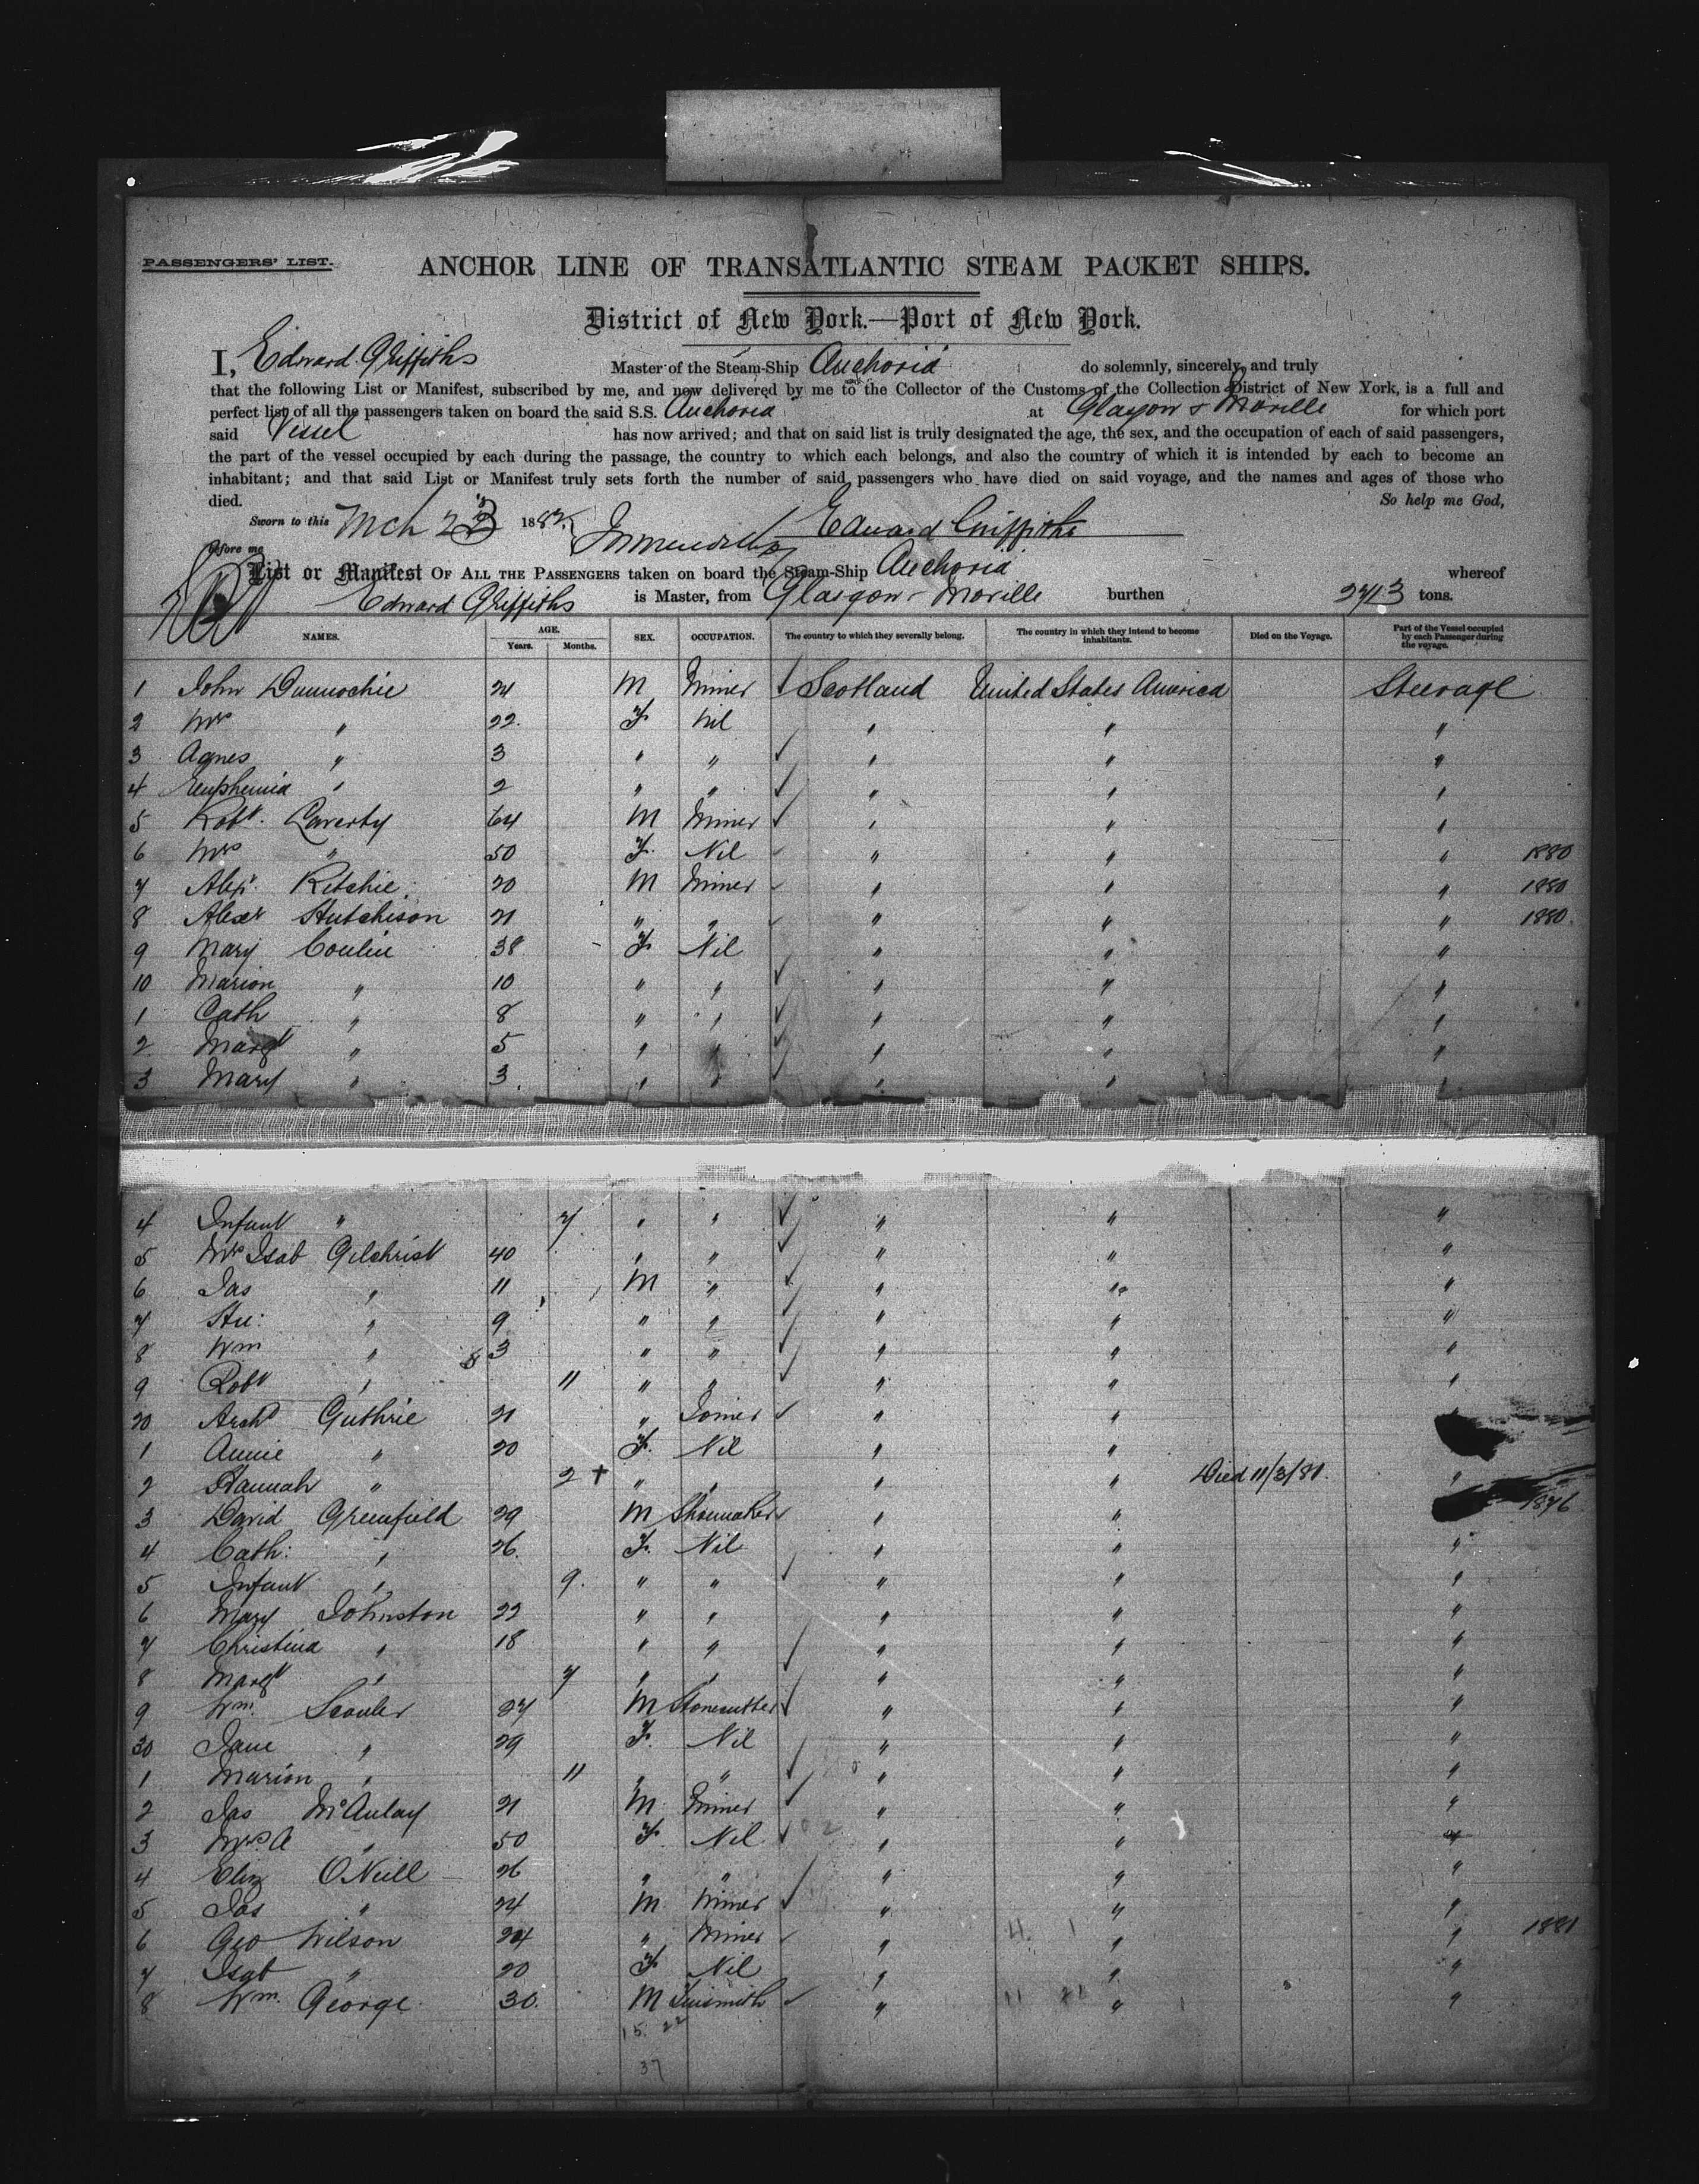 PASSENGERS' LIST.
ANCHOR LINE OF TRANSATLANTIC STEAM PACKET SHIPS.
District of New York.—Port of New York.
I, Edward Griffiths Master of the Steam-Ship Anchoria do solemnly, sincerely, and truly
that the following List or Manifest, subscribed by me, and now delivered by me to the Collector of the Customs of the Collection District of New York, is a full and
perfect list of all the passengers taken on board the said S.S. Anchoria at Glasgow & Moville for which port
said Vessel has now arrived; and that on said list is truly designated the age, the sex, and the occupation of each of said passengers,
the part of the vessel occupied by each during the passage, the country to which each belongs, and also the country of which it is intended by each to become an
inhabitant; and that said List or Manifest truly sets forth the number of said passengers who have died on said voyage, and the names and ages of those who
died. So help me God,
Sworn to this Mch 1882 Edward Griffiths
before me
List or Manifest OF ALL THE PASSENGERS taken on board the Steam-Ship Anchoria whereof
Edward Griffiths is Master, from Glasgow & Moville burthen 2713 tons.
NAMES. AGE. Years. Months. SEX. OCCUPATION. The country to which they severally belong. The country in which they intend to become inhabitants. Died on the Voyage. Part of the Vessel occupied by each Passenger during the voyage.
1 John Dunnochie 24 M Miner Scotland United States America Steerage
2 Mrs " 22 F Nil " " "
3 Agnes " 3 " " " " "
4 Euphemia " 2 " " " " "
5 Robt. Laverty 64 M Miner " " "
6 Mrs " 50 F. Nil " " " 1880
7 Alexr. Ritchie 20 M Miner " " " 1880
8 Alexr Hutchison 21 " " " " " 1880.
9 Mary Conlin 38 F Nil " " "
10 Marion " 10 " " " " "
1 Cath " 8 " " " " "
2 Margt " 5 " " " " "
3 Mary " 3. " " " " "
4 Infant " 7 " " " " "
5 Mrs Isab Gilchrist 40 " " " " "
6 Jas " 11 M " " " "
7 " 9 " " " " "
8 Wm " 3 " " " " "
9 Robt " 11 " " " " "
20 Archd Guthrie 21 " Joiner " " "
1 Annie " 20 F. Nil " "
2 Hannah " 2 + " " " " Died 11/3/81. "
3 David Greenfield 29 M Shoemaker " " 1876
4 Cath: " 26. F. Nil " " "
5 Infant " 9. " " " " "
6 Mary Johnston 22 " " " " "
7 Christina " 18 " " " " "
8 Margt " 7 " " " " "
9 Wm. Scouler 27 M Stonecutter " " "
30 Jane " 29 F. Nil " " "
1 Marion " 11 " " " " "
2 Jas McAulay 21 M Miner " " "
3 Mrs A " 50 F Nil " " "
4 Eliz O'Neill 26 " " " " "
5 Jas " 24 M Miner " " "
6 Geo Wilson 24 " Miner " " " 1881
7 Isab " 20 F Nil " " "
8 Wm. George 30. M Tinsmith " " "
15. 22
37